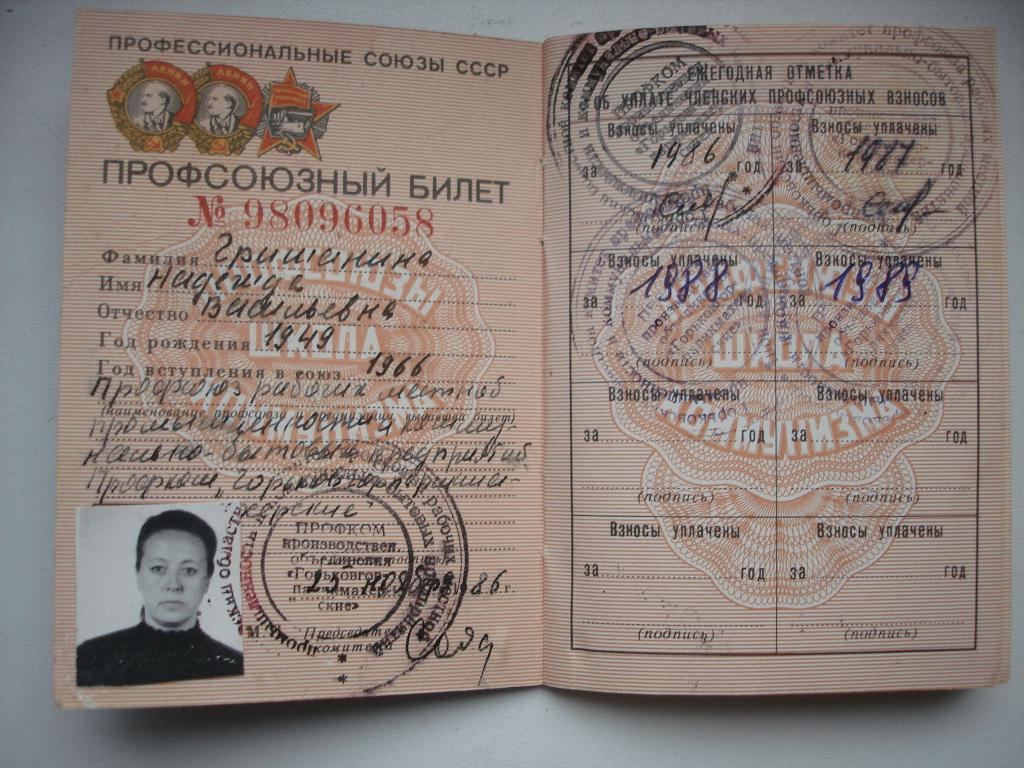 ПРОФЕССИОНАЛЬНЫЕ СОЮЗЫ СССР
ЛЕНИН ЛЕНИН
ПРОФСОЮЗНЫЙ БИЛЕТ
№ 98096058
Фамилия Гришанина
Имя Надежда
Отчество Васильевна
Год рождения 1949
Год вступления в союз 1966
Профсоюз рабочих местной
(наименование профсоюза и организации, выдавшей билет)
промышленности и коммунально-бытовых предприятий
Профком „Горьковгорпарикмахерские"
ПРОФКОМ
производствен.
объединения
«Горьковгор
парикмахер
ские»
ноября 1986 г.
М.
Председатель
комитета
ЕЖЕГОДНАЯ ОТМЕТКА
ОБ УПЛАТЕ ЧЛЕНСКИХ ПРОФСОЮЗНЫХ ВЗНОСОВ
Взносы уплачены Взносы уплачены
за 1986 год за 1987 год
(подпись) (подпись)
Взносы уплачены Взносы уплачены
за 1988 год за 1989 год
ШКОЛА
КОММУНИЗМА
Взносы уплачены Взносы уплачены
за год за год
(подпись) (подпись)
Взносы уплачены Взносы уплачены
за год за год
(подпись) (подпись)